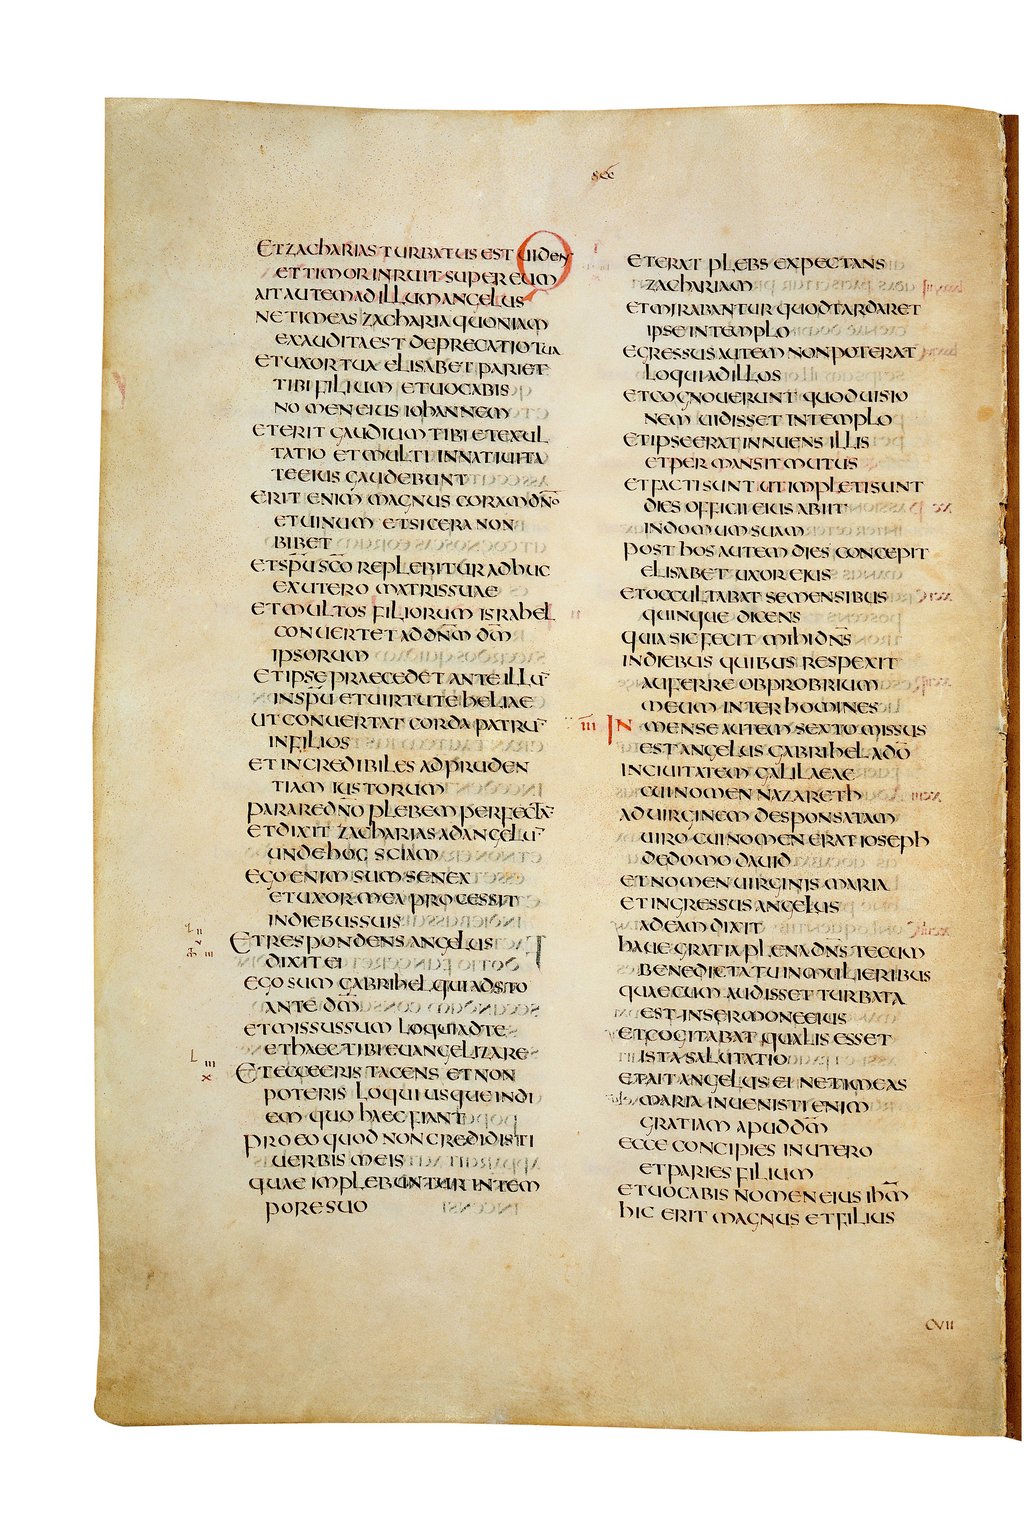 sec
ET ZACHARIAS TURBATUS EST UIDEN
ET TIMOR INRUIT SUPER EUM
AIT AUTEM AD ILLUM ANGELUS
NE TIMEAS ZACHARIA QUONIAM
EXAUDITA EST DEPRECATIO TUA
ET UXOR TUA ELISABET PARIET
TIBI FILIUM ET UOCABIS
NOMEN EIUS IOHANNEM
ET ERIT GAUDIUM TIBI ET EXUL
TATIO ET MULTI IN NATIUITA
TE EIUS GAUDEBUNT
ERIT ENIM MAGNUS CORAM DN̄O
ET UINUM ET SICERA NON
BIBET
ET SP̄U SC̄O REPLEBITUR ADHUC
EX UTERO MATRIS SUAE
ET MULTOS FILIORUM ISRAHEL
CONUERTET AD DN̄M DM̄
IPSORUM
ET IPSE PRAECEDET ANTE ILLŪ
IN SPŪ ET UIRTUTE HELIAE
UT CONUERTAT CORDA PATRŪ
IN FILIOS
ET INCREDIBILES AD PRUDEN
TIAM IUSTORUM
PARARE DN̄O PLEBEM PERFECTĀ
ET DIXIT ZACHARIAS AD ANGELŪ
UNDE HOC SCIAM
EGO ENIM SUM SENEX
ET UXOR MEA PROCESSIT
IN DIEBUS SUIS
ET RESPONDENS ANGELUS
DIXIT EI
EGO SUM GABRIHEL QUI ADSTO
ANTE DM̄
ET MISSUS SUM LOQUI AD TE
ET HAEC TIBI EUANGELIZARE
L
III
X
ET ECCE ERIS TACENS ET NON
POTERIS LOQUI USQUE IN DI
EM QUO HAEC FIANT
PRO EO QUOD NON CREDIDISTI
UERBIS MEIS
QUAE IMPLEBUNTUR IN TEM
PORE SUO
ET ERAT PLEBS EXPECTANS
ZACHARIAM
ET MIRABANTUR QUOD TARDARET
IPSE IN TEMPLO
EGRESSUS AUTEM NON POTERAT
LOQUI AD ILLOS
ET COGNOUERUNT QUOD UISIO
NEM UIDISSET IN TEMPLO
ET IPSE ERAT INNUENS ILLIS
ET PERMANSIT MUTUS
ET FACTI SUNT UT IMPLETI SUNT
DIES OFFICII EIUS ABIIT
IN DOMUM SUAM
POST HOS AUTEM DIES CONCEPIT
ELISABET UXOR EIUS
ET OCCULTABAT SE MENSIBUS
QUINQUE DICENS
QUIA SIC FECIT MIHI DN̄S
IN DIEBUS QUIBUS RESPEXIT
AUFERRE OBPROBRIUM
MEUM INTER HOMINES
III IN MENSE AUTEM SEXTO MISSUS
EST ANGELUS GABRIHEL A DŌ
IN CIUITATEM GALILAEAE
CUI NOMEN NAZARETH
AD UIRGINEM DESPONSATAM
UIRO CUI NOMEN ERAT IOSEPH
DE DOMO DAUID
ET NOMEN UIRGINIS MARIA
ET INGRESSUS ANGELUS
AD EAM DIXIT
HAUE GRATIA PLENA DN̄S TECUM
BENEDICTA TU IN MULIERIBUS
QUAE CUM AUDISSET TURBATA
EST IN SERMONE EIUS
ET COGITABAT QUALIS ESSET
ISTA SALUTATIO
ET AIT ANGELUS EI NE TIMEAS
MARIA INUENISTI ENIM
GRATIAM APUD DM̄
ECCE CONCIPIES IN UTERO
ET PARIES FILIUM
ET UOCABIS NOMEN EIUS IHM̄
HIC ERIT MAGNUS ET FILIUS
CVII